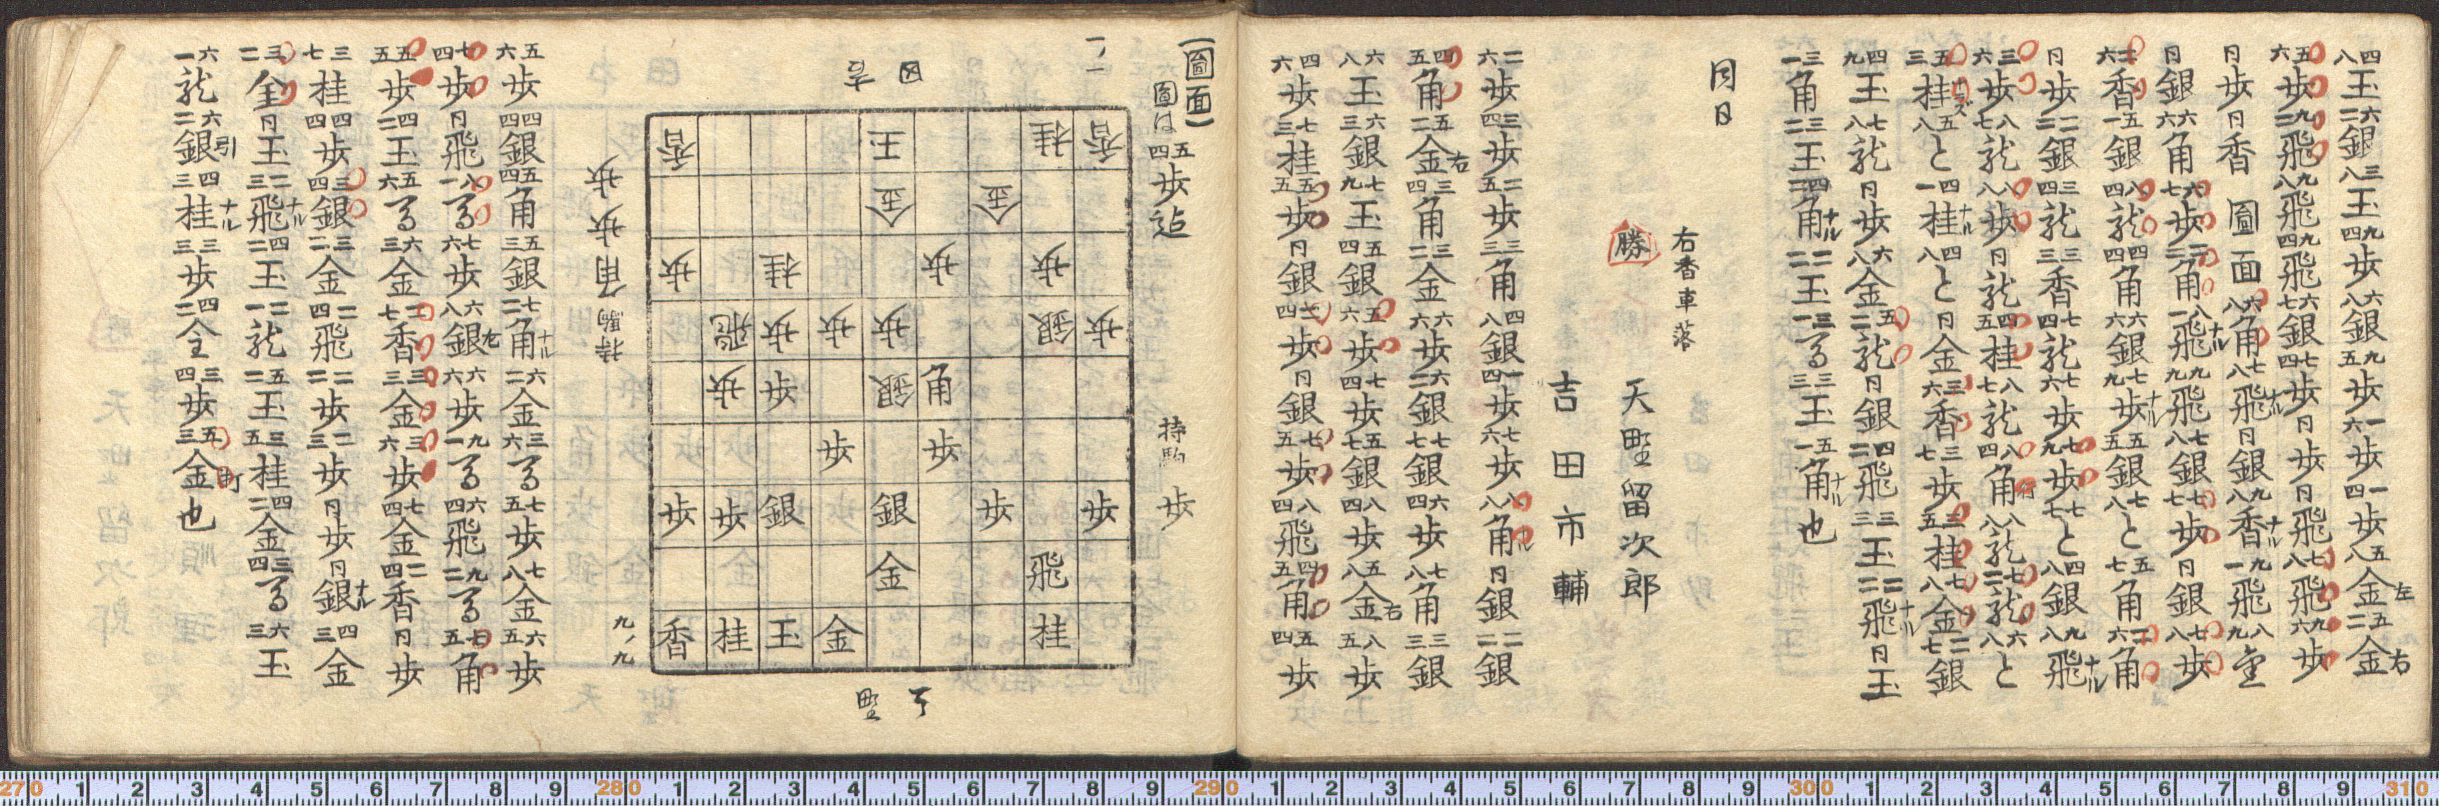 四八玉六二銀三八玉四九歩六八銀九五歩一六歩一四歩五八金左五二金右
五六歩九二飛九八飛九四飛六七銀七四歩同歩同飛七八飛九六歩
同歩同香
圖面
六八角七八飛ナル同銀九八香ナル九一飛八九全
同銀六六角六七歩三三角八一飛ナル九九飛七八銀七七歩同銀七八歩
二六香五一銀八四龍四四角六六銀七九歩ナル五五銀七八と五七角二六角
同歩二二銀三四龍三三香七四龍七六歩七九歩七七と四八銀九八飛ナル
三六歩八七龍八八歩同龍四五桂八七龍八四角行八八龍七二龍六八と
五三桂ナラズ五八と四一桂ナル四八と同金三六香三七歩三五桂七八金二七銀
四九玉七八龍同歩六八金五二龍同銀四二飛三三玉二二飛ナル同玉
三一角三二玉四二角ナル二二玉三一馬三三玉五一角ナル也
同日
右香車落
勝 天野留次郎
吉田市輔
二六歩三四歩二五歩三三角四八銀一四歩七六歩八八角ナル同銀二二銀
四五角五二金右三四角三二金六六歩六二銀七七銀六四歩七八角三三銀
六八玉六三銀七九玉五四銀五六歩七四歩五七銀八四歩五八金右八五歩
四六歩七三桂五五歩同銀二四歩同銀七五歩八四飛四五角五四歩
(圖面)
圖は五四歩迠
一ノ一
持駒 歩
田 吉
香 王 桂 香
金 金
歩 桂 歩 歩
飛 歩 歩 歩 銀 歩
歩 歩 銀 角
歩 歩
歩 歩 銀 銀 歩 歩
金 飛
香 桂 玉 金 桂
野 天
九ノ九
持駒 角 歩 歩 歩
五六歩四四銀五四角五三銀七二角ナル六二金三六馬七五歩七八金六五歩
七四歩同飛八一馬七六歩六八銀左六六歩九一馬六四飛九二馬七五角
五五歩四二玉五六馬六三金二七香三三金三六歩七四金二四香同歩
三七桂四四歩三四銀三二金二四飛二二歩二三歩同歩同銀ナル四三金
三二全同玉二三飛ナル四二玉二一龍五二玉三五桂四二金三四馬六三玉
六一龍六二銀引四三桂ナル三三歩四二全三四歩五三金也